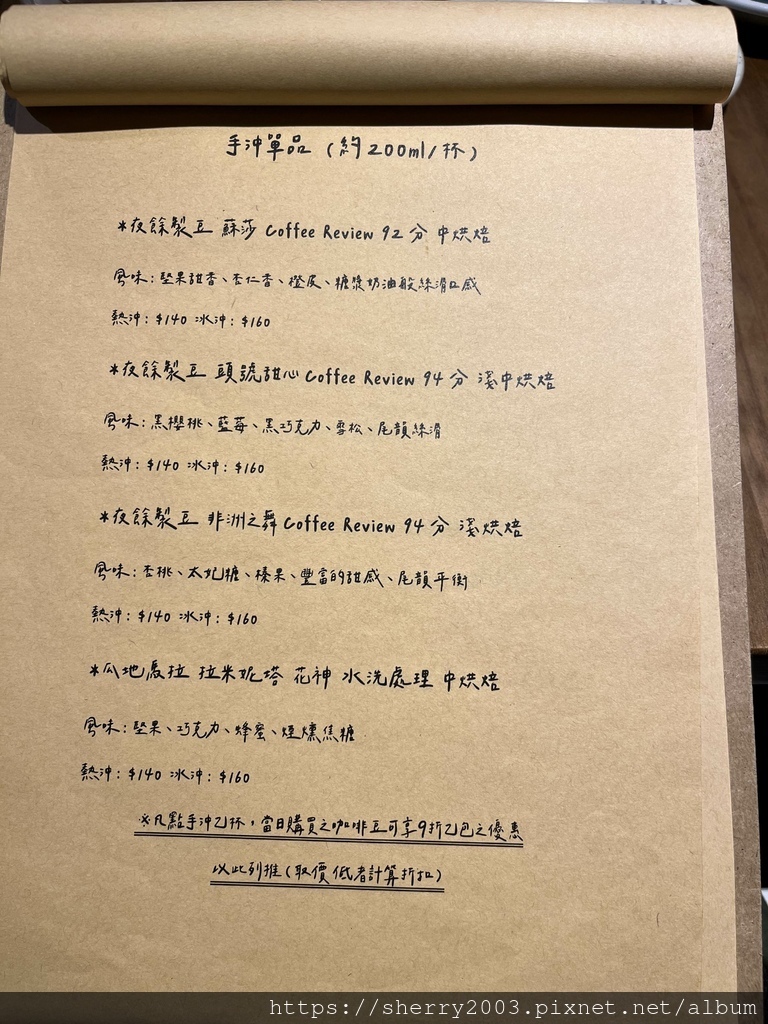 手沖單品（約200ml/杯）
*夜餘製豆 蘇莎 Coffee Review 92分 中烘焙
風味：堅果甜香、杏仁香、橙皮、糖漿奶油般絲滑口感
熱沖：$140 冰沖：$160
*夜餘製豆 頭號甜心 Coffee Review 94分 淺中烘焙
風味：黑櫻桃、藍莓、黑巧克力、雪松、尾韻絲滑
熱沖：$140 冰沖：$160
*夜餘製豆 非洲之舞 Coffee Review 94分 淺烘焙
風味：杏桃、太妃糖、榛果、豐富的甜感、尾韻平衡
熱沖：$140 冰沖：$160
*瓜地馬拉 拉米妮塔 花神 水洗處理 中烘焙
風味：堅果、巧克力、蜂蜜、煙燻焦糖
熱沖：$140 冰沖：$160
※凡點手沖乙杯，當日購買之咖啡豆可享9折乙包之優惠
以此列推（取價低者計算折扣）
https://sherry2003.pixnet.net/album